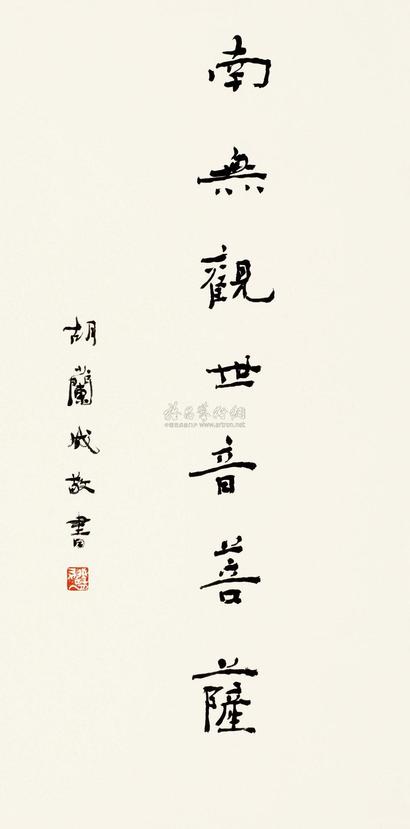 南無觀世音菩薩
胡蘭成敬書
www.artron.net